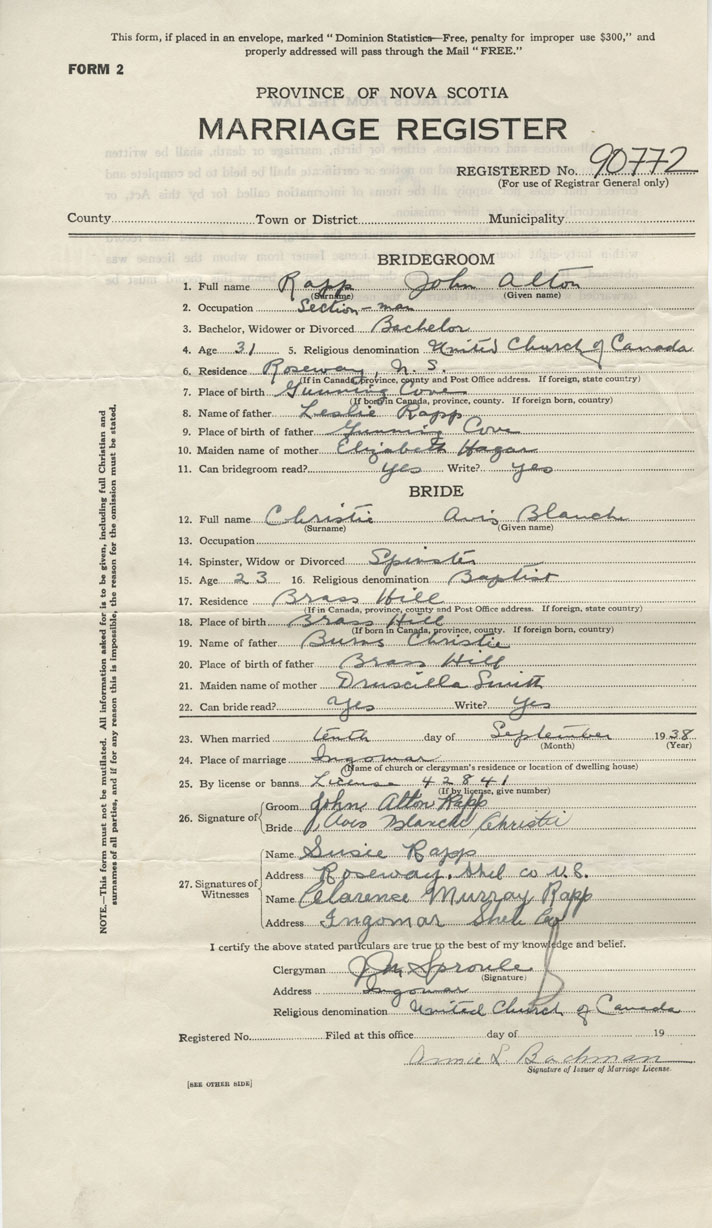 This form, if placed in an envelope, marked "Dominion Statistics—Free, penalty for improper use $300," and
properly addressed will pass through the Mail "FREE."
FORM 2
PROVINCE OF NOVA SCOTIA
MARRIAGE REGISTER
REGISTERED No. 90772
(For use of Registrar General only)
County Town or District Municipality
BRIDEGROOM
1. Full name Rapp John Alton
(Surname) (Given name)
2. Occupation Section-man
3. Bachelor, Widower or Divorced Bachelor
4. Age 31 5. Religious denomination United Church of Canada
6. Residence Roseway, N. S.
(If in Canada, province, county and Post Office address. If foreign, state country)
7. Place of birth Gunning Cove
(If born in Canada, province, county. If foreign born, country)
8. Name of father Leslie Rapp
9. Place of birth of father Gunning Cove
10. Maiden name of mother Elizabeth Hagar
11. Can bridegroom read? yes Write? yes
BRIDE
12. Full name Christie Avis Blanche
(Surname) (Given name)
13. Occupation
14. Spinster, Widow or Divorced Spinster
15. Age 23 16. Religious denomination Baptist
17. Residence Brass Hill
(If in Canada, province, county and Post Office address. If foreign, state country)
18. Place of birth Brass Hill
(If born in Canada, province, county. If foreign born, country)
19. Name of father Burns Christie
20. Place of birth of father Brass Hill
21. Maiden name of mother Druscilla Smith
22. Can bride read? yes Write? yes
23. When married tenth day of September 1938
(Month) (Year)
24. Place of marriage Ingomar
(Name of church or clergyman's residence or location of dwelling house)
25. By license or banns License 42841
(If by license, give number)
26. Signature of Groom John Alton Rapp
Bride Avis Blanche Christie
27. Signatures of Witnesses
Name Susie Rapp
Address Roseway. Shel co N.S.
Name Clarence Murray Rapp
Address Ingomar Shel Co
I certify the above stated particulars are true to the best of my knowledge and belief.
Clergyman Sproule
(Signature)
Address Ingomar
Religious denomination United Church of Canada
Registered No. Filed at this office day of 19
Annie L. Bachman
Signature of Issuer of Marriage License.
[SEE OTHER SIDE]
NOTE.—This form must not be mutilated. All information asked for is to be given, including full Christian and
surnames of all parties, and if for any reason this is impossible, the reason for the omission must be stated.